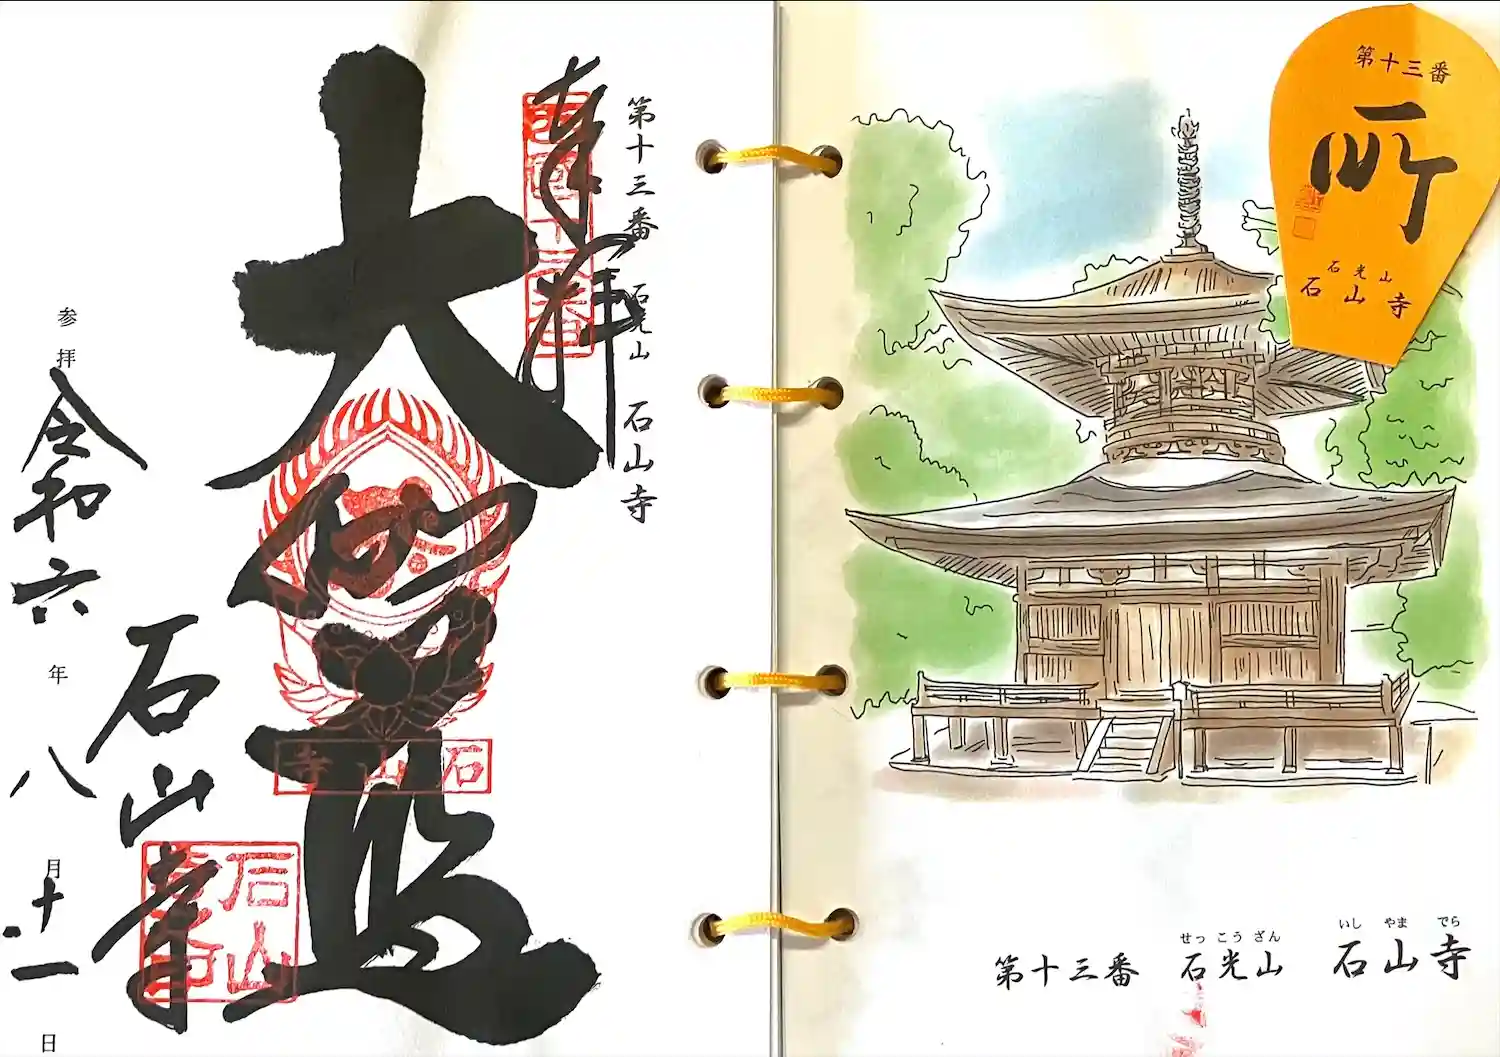 奉拝
西国十三番
第十三番 石光山 石山寺
大伽藍
石山寺
石山寺
参拝 令和六年 八月十一日
第十三番
所
石光山
石山寺
第十三番 石光山 石山寺
せっ こう ざん いし やま でら